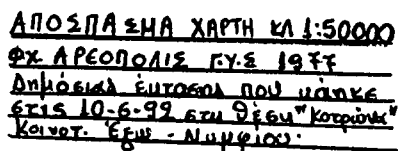 ΑΠΟΣΠΑΣΜΑ ΧΑΡΤΗ ΚΛ 1:50000
ΦΧ ΑΡΕΟΠΟΛΙΣ Γ.Υ.Σ 1977
Δημόσια έκταση που κάηκε
στις 10-6-92 στη θέση "Κοτρώνια"
Κοινοτ. Έξω - Νυμφίου.